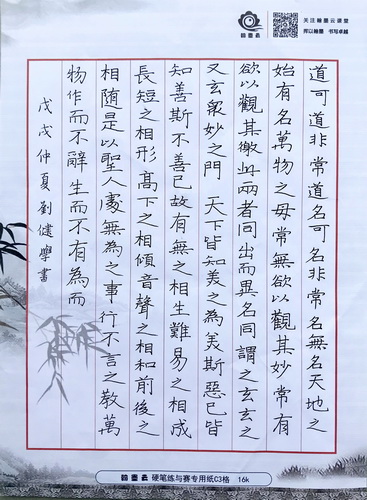 翰墨云
关注翰墨云课堂
挥以翰墨 书写卓越
道可道非常道名可名非常名無名天地之
始有名萬物之母常無欲以觀其妙常有
欲以觀其徼此兩者同出而異名同謂之玄玄之
又玄衆妙之門 天下皆知美之為美斯惡已皆
知善斯不善已故有無之相生難易之相成
長短之相形高下之相傾音聲之相和前後之
相随是以聖人處無為之事行不言之教萬
物作而不辭生而不有為而
戊戌仲夏劉健學書
翰墨云 硬笔练与赛专用纸C3格 16k